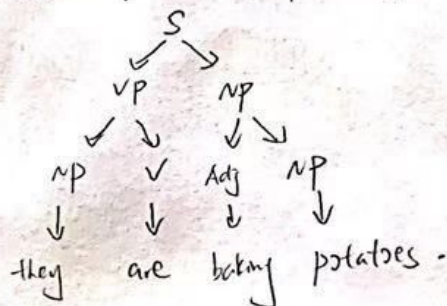 S
VP NP
NP V Adj NP
they are baking potatoes.